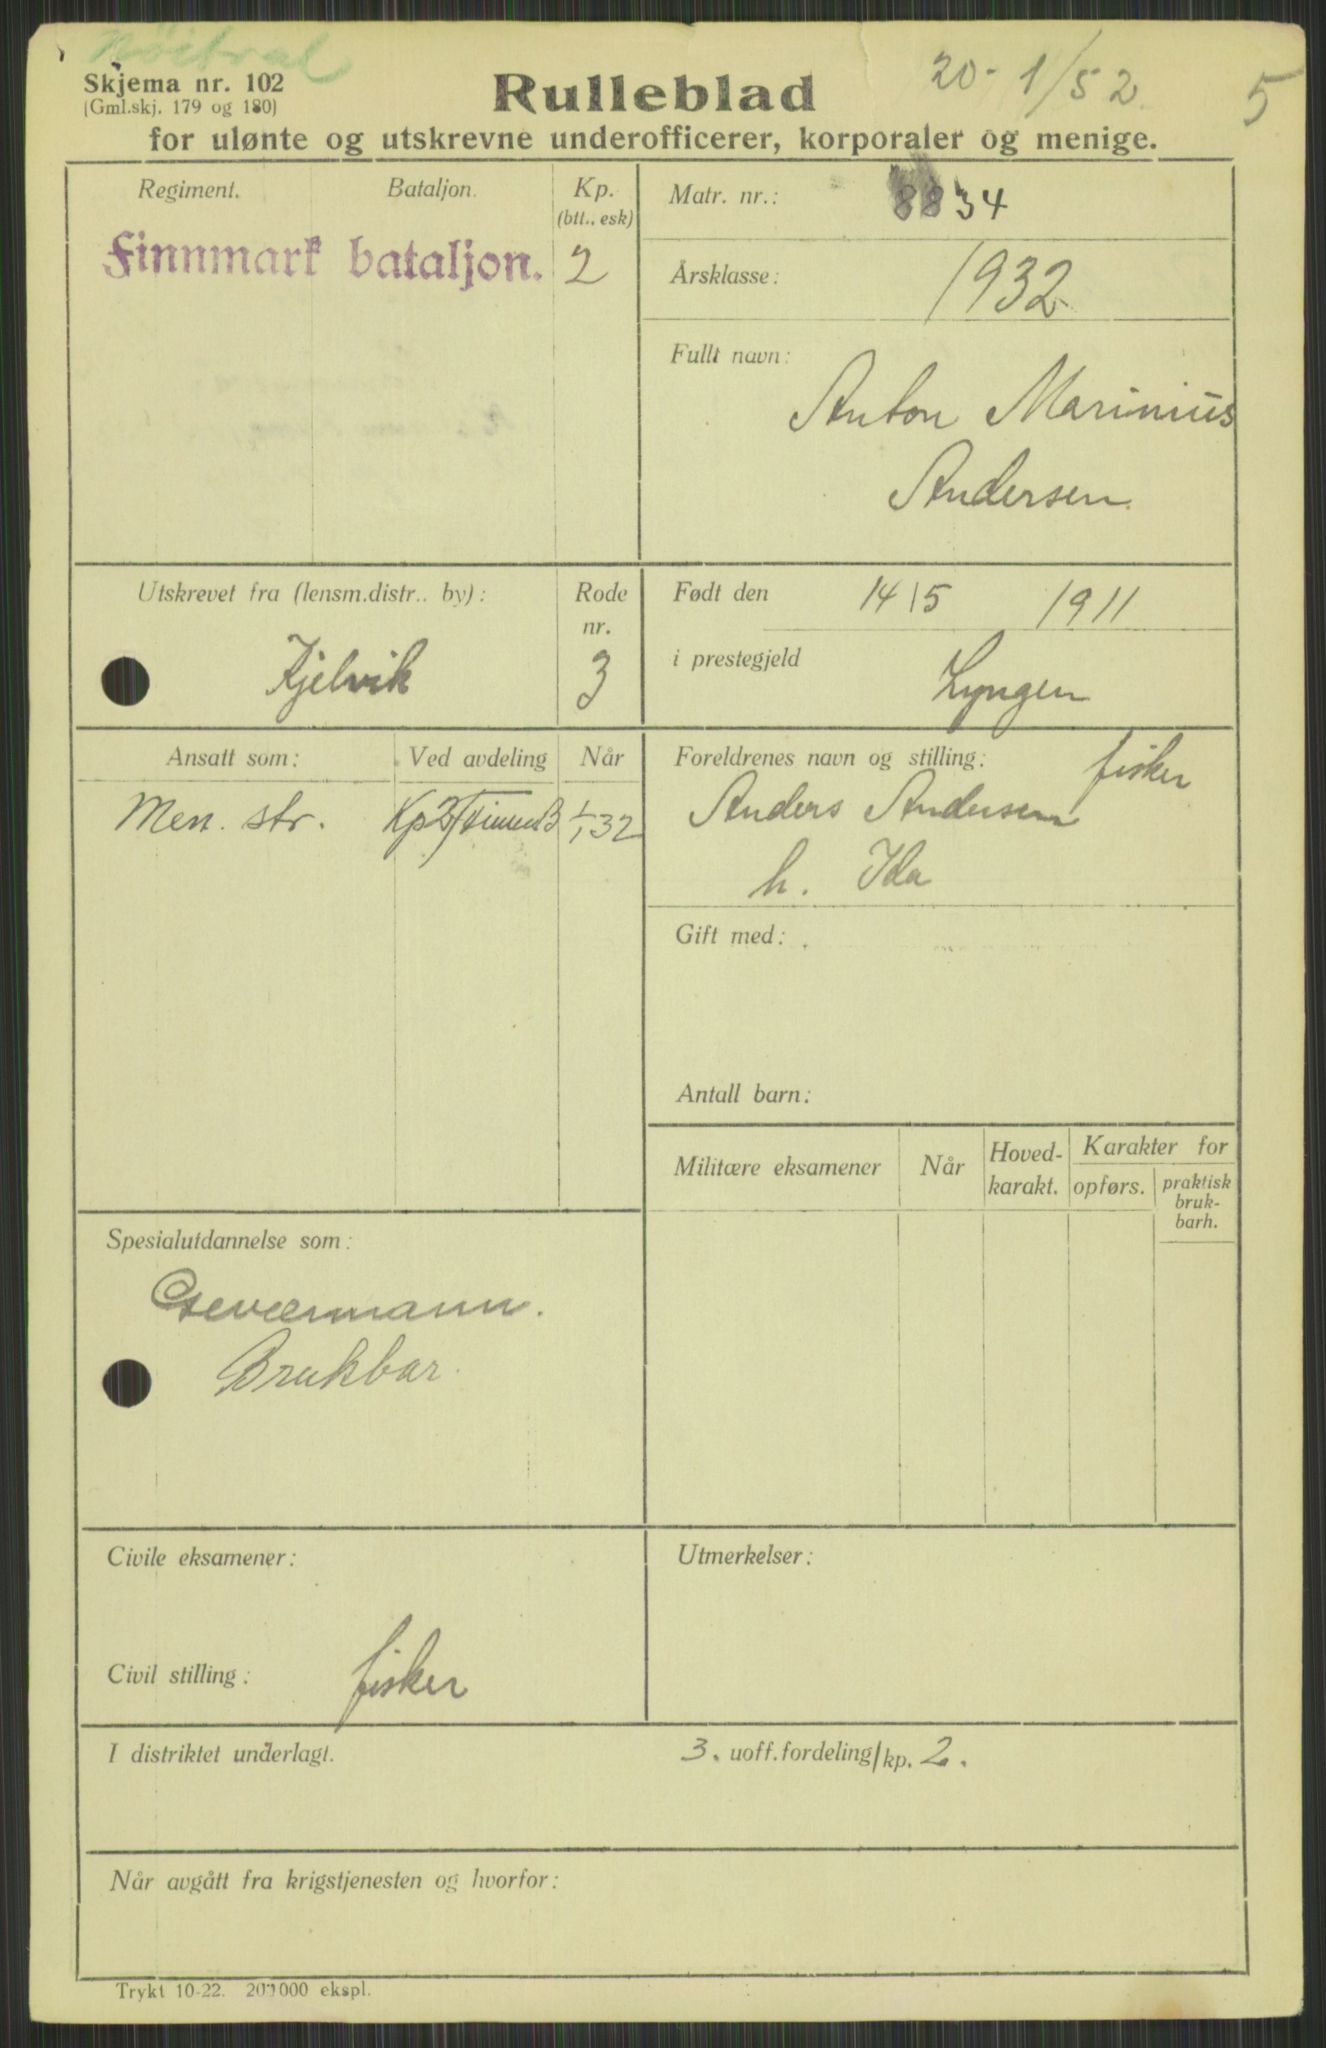 Skjema nr. 102
(Gml.skj. 179 og 180)
Rulleblad
20-1/52
5
for ulønte og utskrevne underofficerer, korporaler og menige.
Regiment.
Bataljon.
Kp.
(btt., esk)
Finnmark bataljon.
2
Matr. nr.: 8834
Årsklasse: 1932
Fullt navn:
Anton Marinius
Andersen
Utskrevet fra (lensm.distr.. by):
Kjelvik
Rode
nr.
3
Født den 14/5 1911
i prestegjeld Lyngen
Ansatt som:
Ved avdeling
Når
Men. str.
1/1 32
Foreldrenes navn og stilling: fisker
Anders Andersen
h. Ida
Gift med:
Antall barn:
Militære eksamener
Når
Hoved-
karakt.
Karakter for
opførs.
praktisk
bruk-
barh.
Spesialutdannelse som:
Geværmann.
Brukbar.
Civile eksamener:
Civil stilling: fisker
Utmerkelser:
I distriktet underlagt.
3. uoff.fordeling/kp. 2.
Når avgått fra krigstjenesten og hvorfor:
Trykt 10-22. 200000 ekspl.